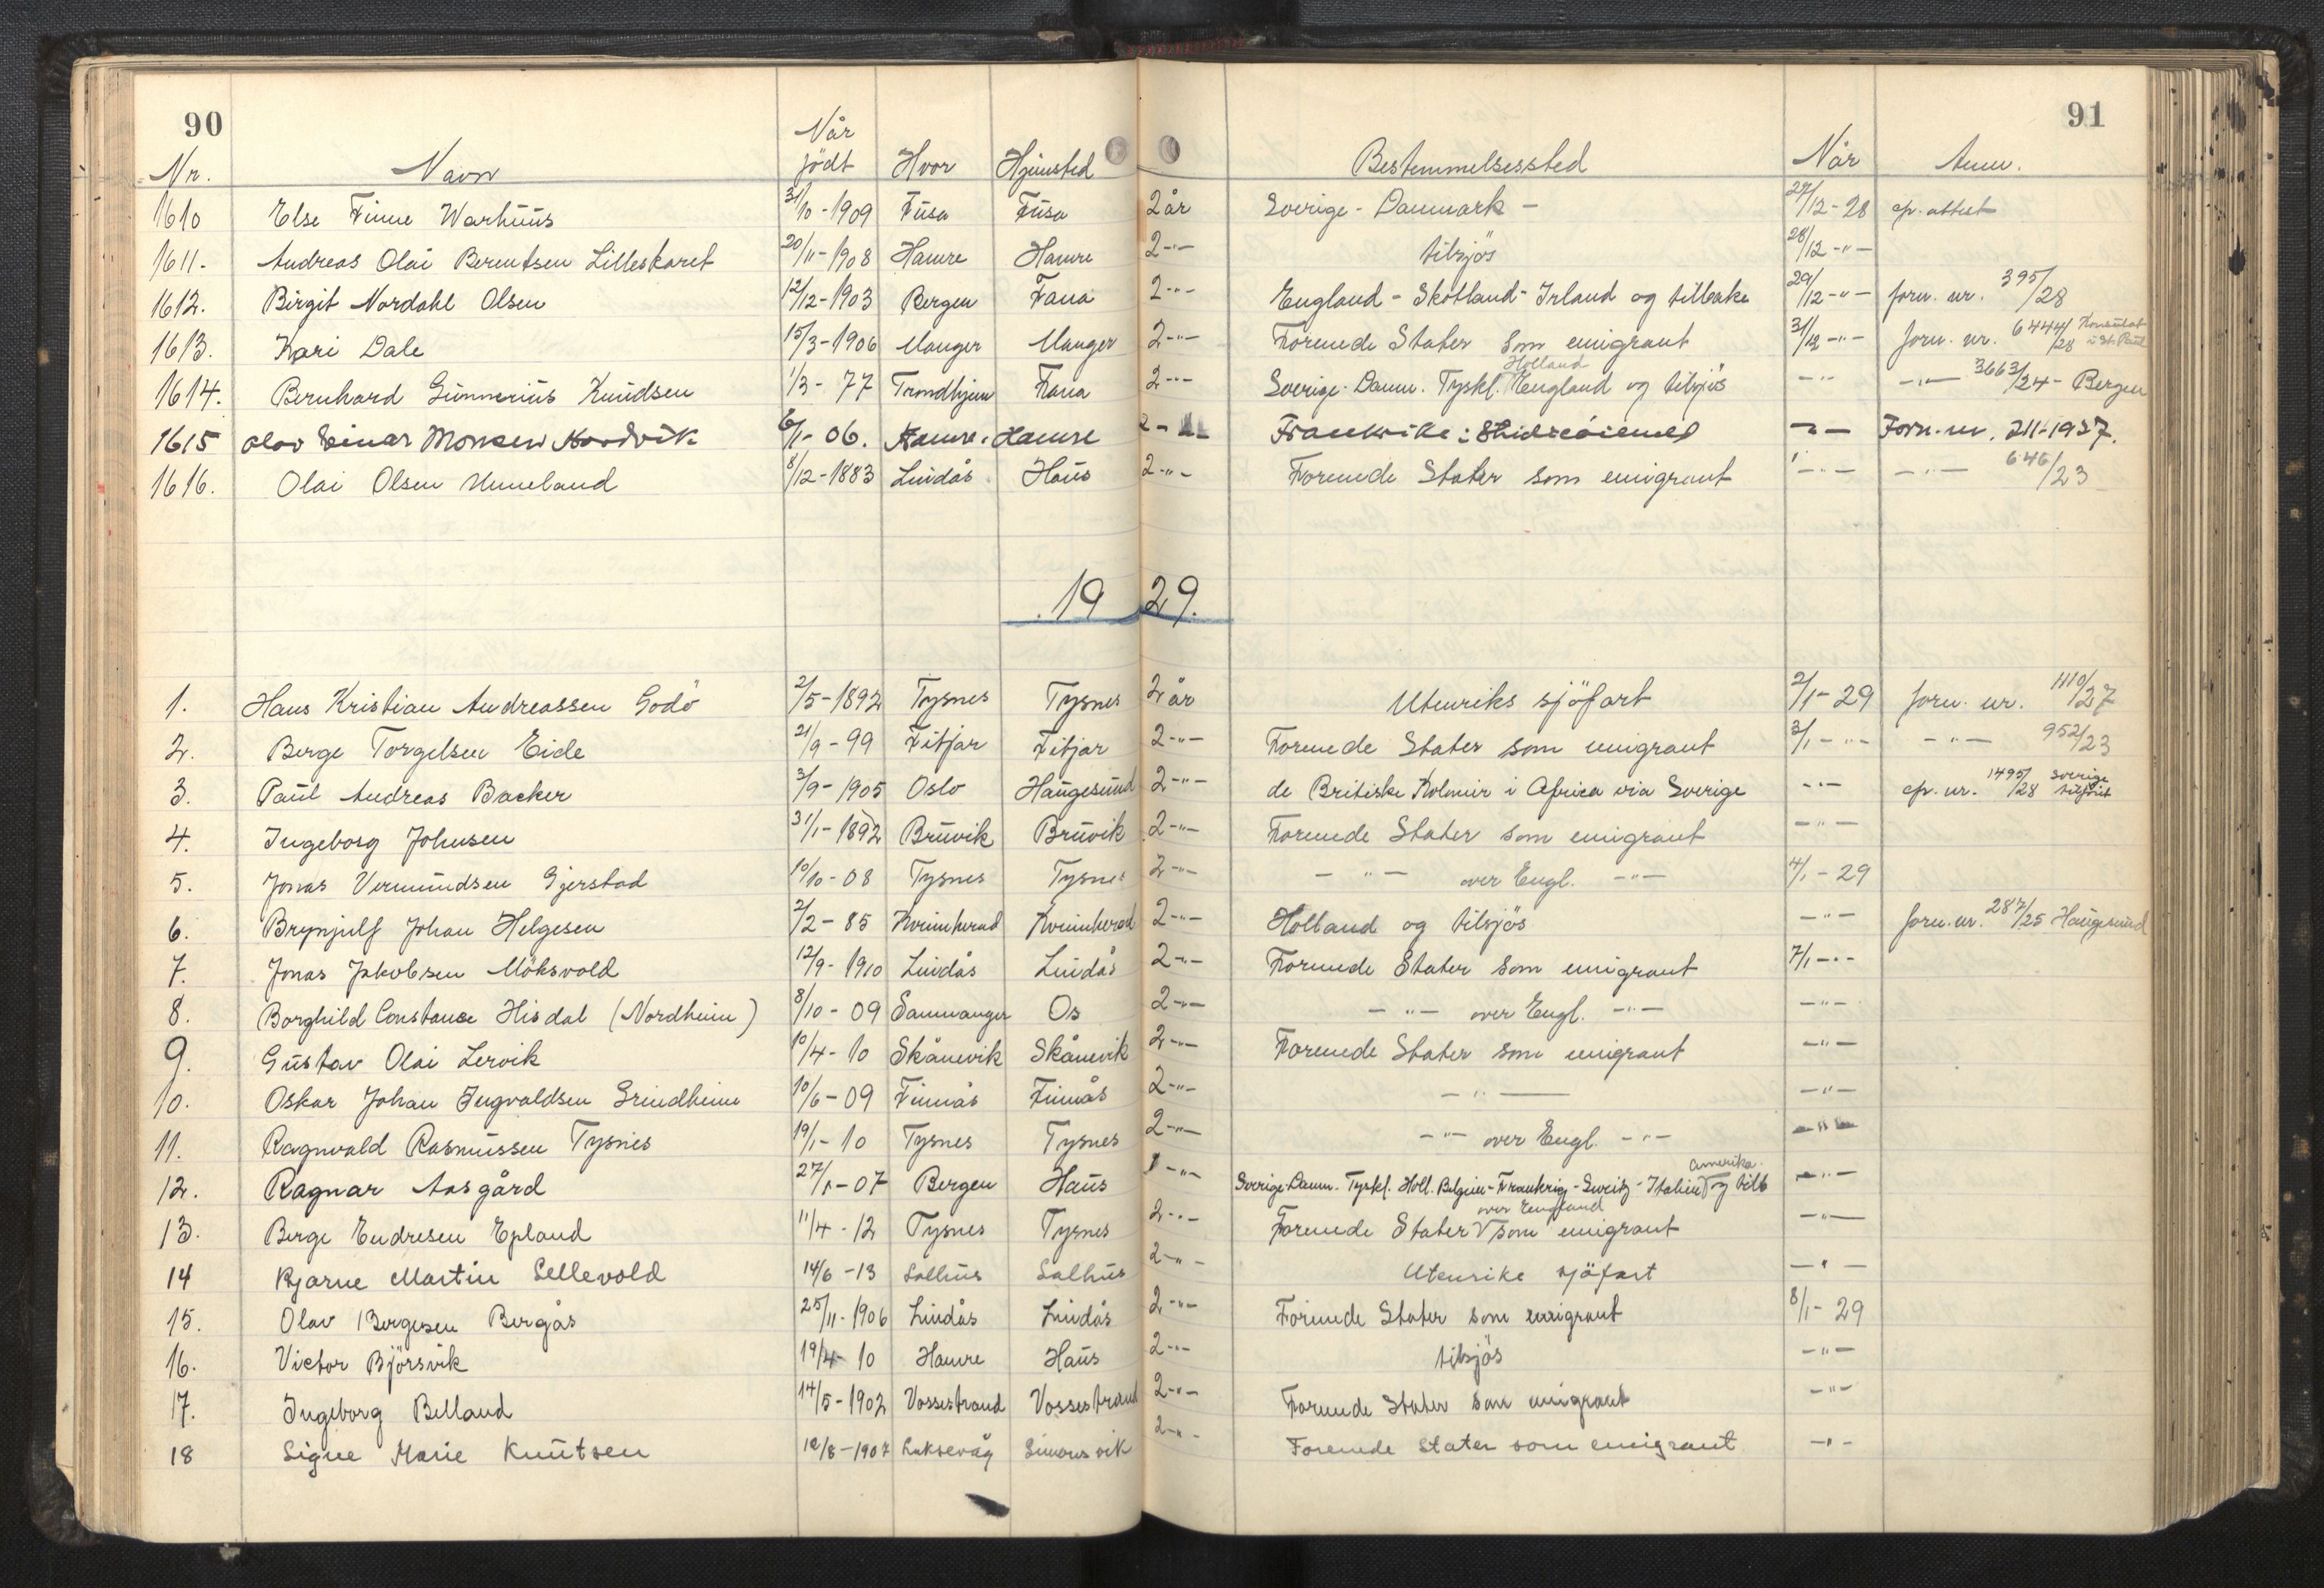 90
91
Nr. Navn Når födt Hvor Hjemsted Bestemmelsessted Når Anm.
1610 Else Finne Warhuus 31/10-1909 Fusa Fusa 2 år Sverige - Danmark - 27/12-28 cfr. attest
1611. Andreas Olai Berentsen Lilleskaret 20/11-1908 Hamre Hamre 2-"- tilsjös 28/12-"-
1612. Birgit Nordahl Olsen 12/12-1903 Bergen Fana 2-"- England - Skotland - Irland og tilbake 29/12-"- forn. nr. 395/28
1613. Kari Dale 15/3-1906 Manger Manger 2-"- Forenede Stater som emigrant 31/12-"- forn. nr. 6444/28 Konsulat i St. Paul
1614. Bernhard Gunnerius Knudsen 1/3-77 Trondhjem Fana 2-"- Sverige - Danm. Tyskl. Holland England og tilsjös -"- -"- 3663/24 - Bergen
1615 Olav Einar Monsen Nordvik 6/1-06. Hamre. Hamre 2-"- Frankrike: Studieöiemed -"- Forn. nr. 211-1927.
1616. Olai Olsen Unneland 8/12-1883 Lindås Haus 2-"- Forenede Stater som emigrant -"- -"- 646/23
1929.
1. Hans Kristian Andreassen Godö 2/5-1892 Tysnes Tysnes 2 år Utenriks sjöfart 2/1-29 forn. nr. 1110/27
2. Berge Torgelsen Eide 21/9-99 Fitjar Fitjar 2-"- Forenede Stater som emigrant 3/1-"- -"- 952/23
3. Paul Andreas Backer 3/9-1905 Oslo Haugesund 2-"- de Britiske Kolonier i Africa via Sverige -"- cfr. nr. 1495/28 Sverige
4. Ingeborg Johnsen 31/1-1892 Bruvik Bruvik 2-"- Forenede Stater som emigrant -"-
5. Jonas Vermundsen Gjerstad 10/10-08 Tysnes Tysnes 2-"- -"- over Engl. -"- 4/1-29
6. Brynjulf Johan Helgesen 2/2-85 Kvinnherad Kvinnherad 2-"- Holland og tilsjös -"- forn. nr. 287/25 Haugesund
7. Jonas Jakobsen Möksvold 12/9-1910 Lindås Lindås 2-"- Forenede Stater som emigrant 7/1-"-
8. Borghild Constanse Hisdal (Nordheim) 8/10-09 Samnanger Os 2-"- -"- over Engl. -"- -"-
9. Gustav Olai Lervik 10/4-10 Skånevik Skånevik 2-"- Forenede Stater som emigrant -"-
10. Oskar Johan Ingvaldsen Grindheim 10/6-09 Finnås Finnås 2-"- -"- -"-
11. Ragnvald Rasmussen Tysnes 19/1-10 Tysnes Tysnes 2-"- -"- over Engl. -"- -"-
12. Ragnar Aasgård 27/1-07 Bergen Haus 1-"- Sverige - Danm. - Tyskl. Holl. Belgien - Frankrig - Sweitz - Italien Amerika og tilb -"-
13. Berge Endresen Epland 11/4-12 Tysnes Tysnes 2-"- Forenede Stater over England som emigrant -"-
14 Bjarne Martin Sellevold 14/6-13 Salhus Salhus 2-"- Utenrike sjöfart -"-
15. Olav Bergesen Bergås 25/11-1906 Lindås Lindås 2-"- Forenede Stater som emigrant 8/1-29
16. Victor Björsvik 19/4-10 Hamre Haus 2-"- tilsjös -"-
17. Ingeborg Belland 14/5-1902 Vossestrand Vossestrand 2-"- Forenede Stater som emigrant -"-
18 Signe Marie Knutsen 10/8-1907 Laksevåg Simonsvik 2-"- Forenede Stater som emigrant -"-